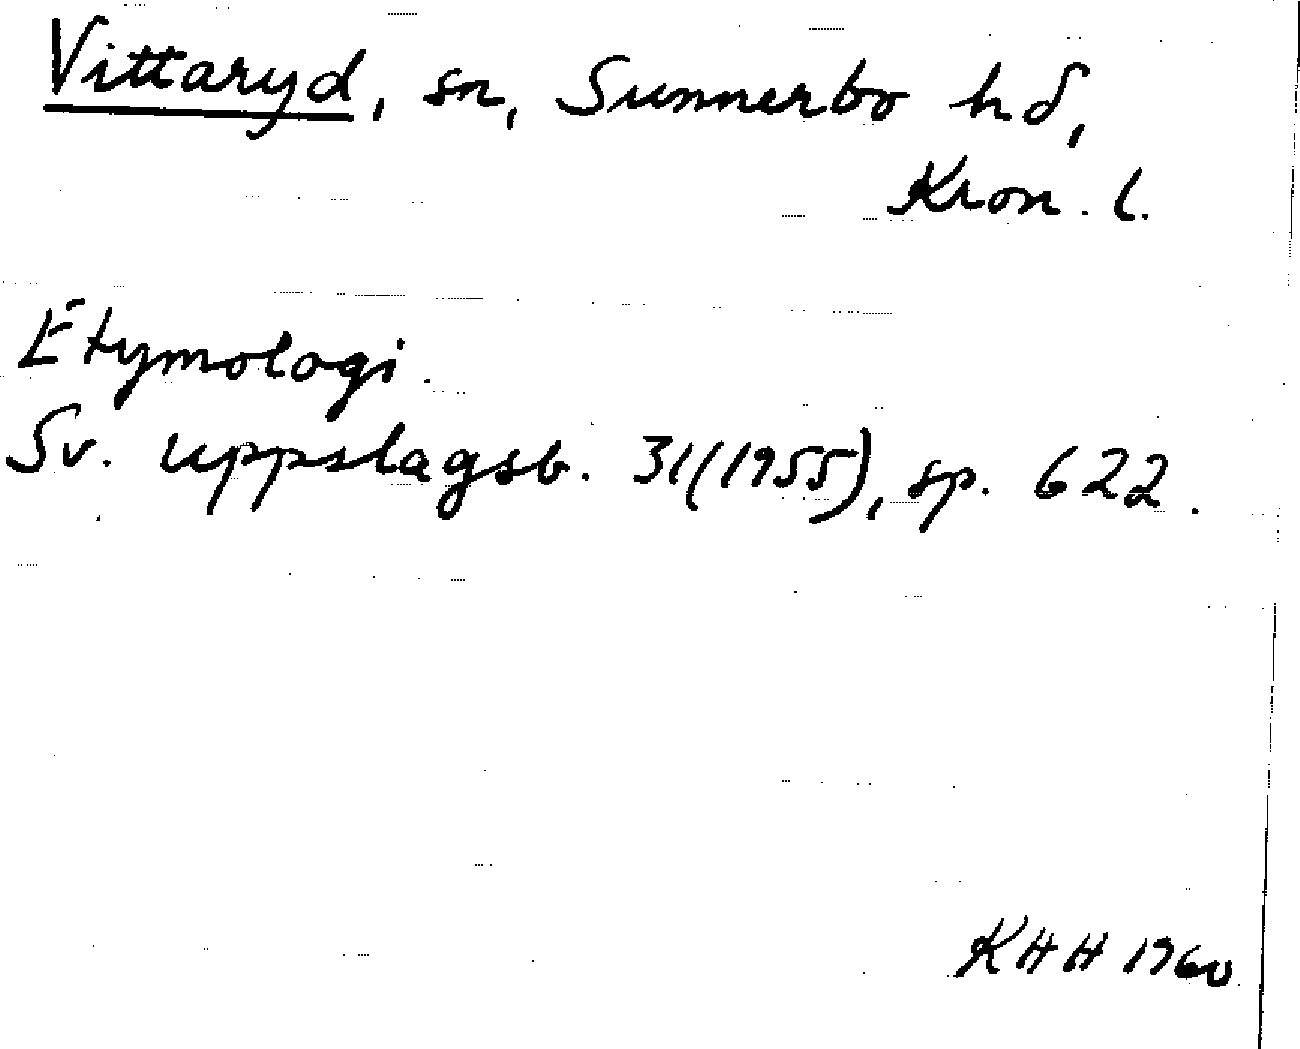 Vittaryd, sn, Sunnerbo hd,
Kron. l.
Etymologi.
Sv. uppslagsb. 31(1955), sp. 622.
KHH 1960